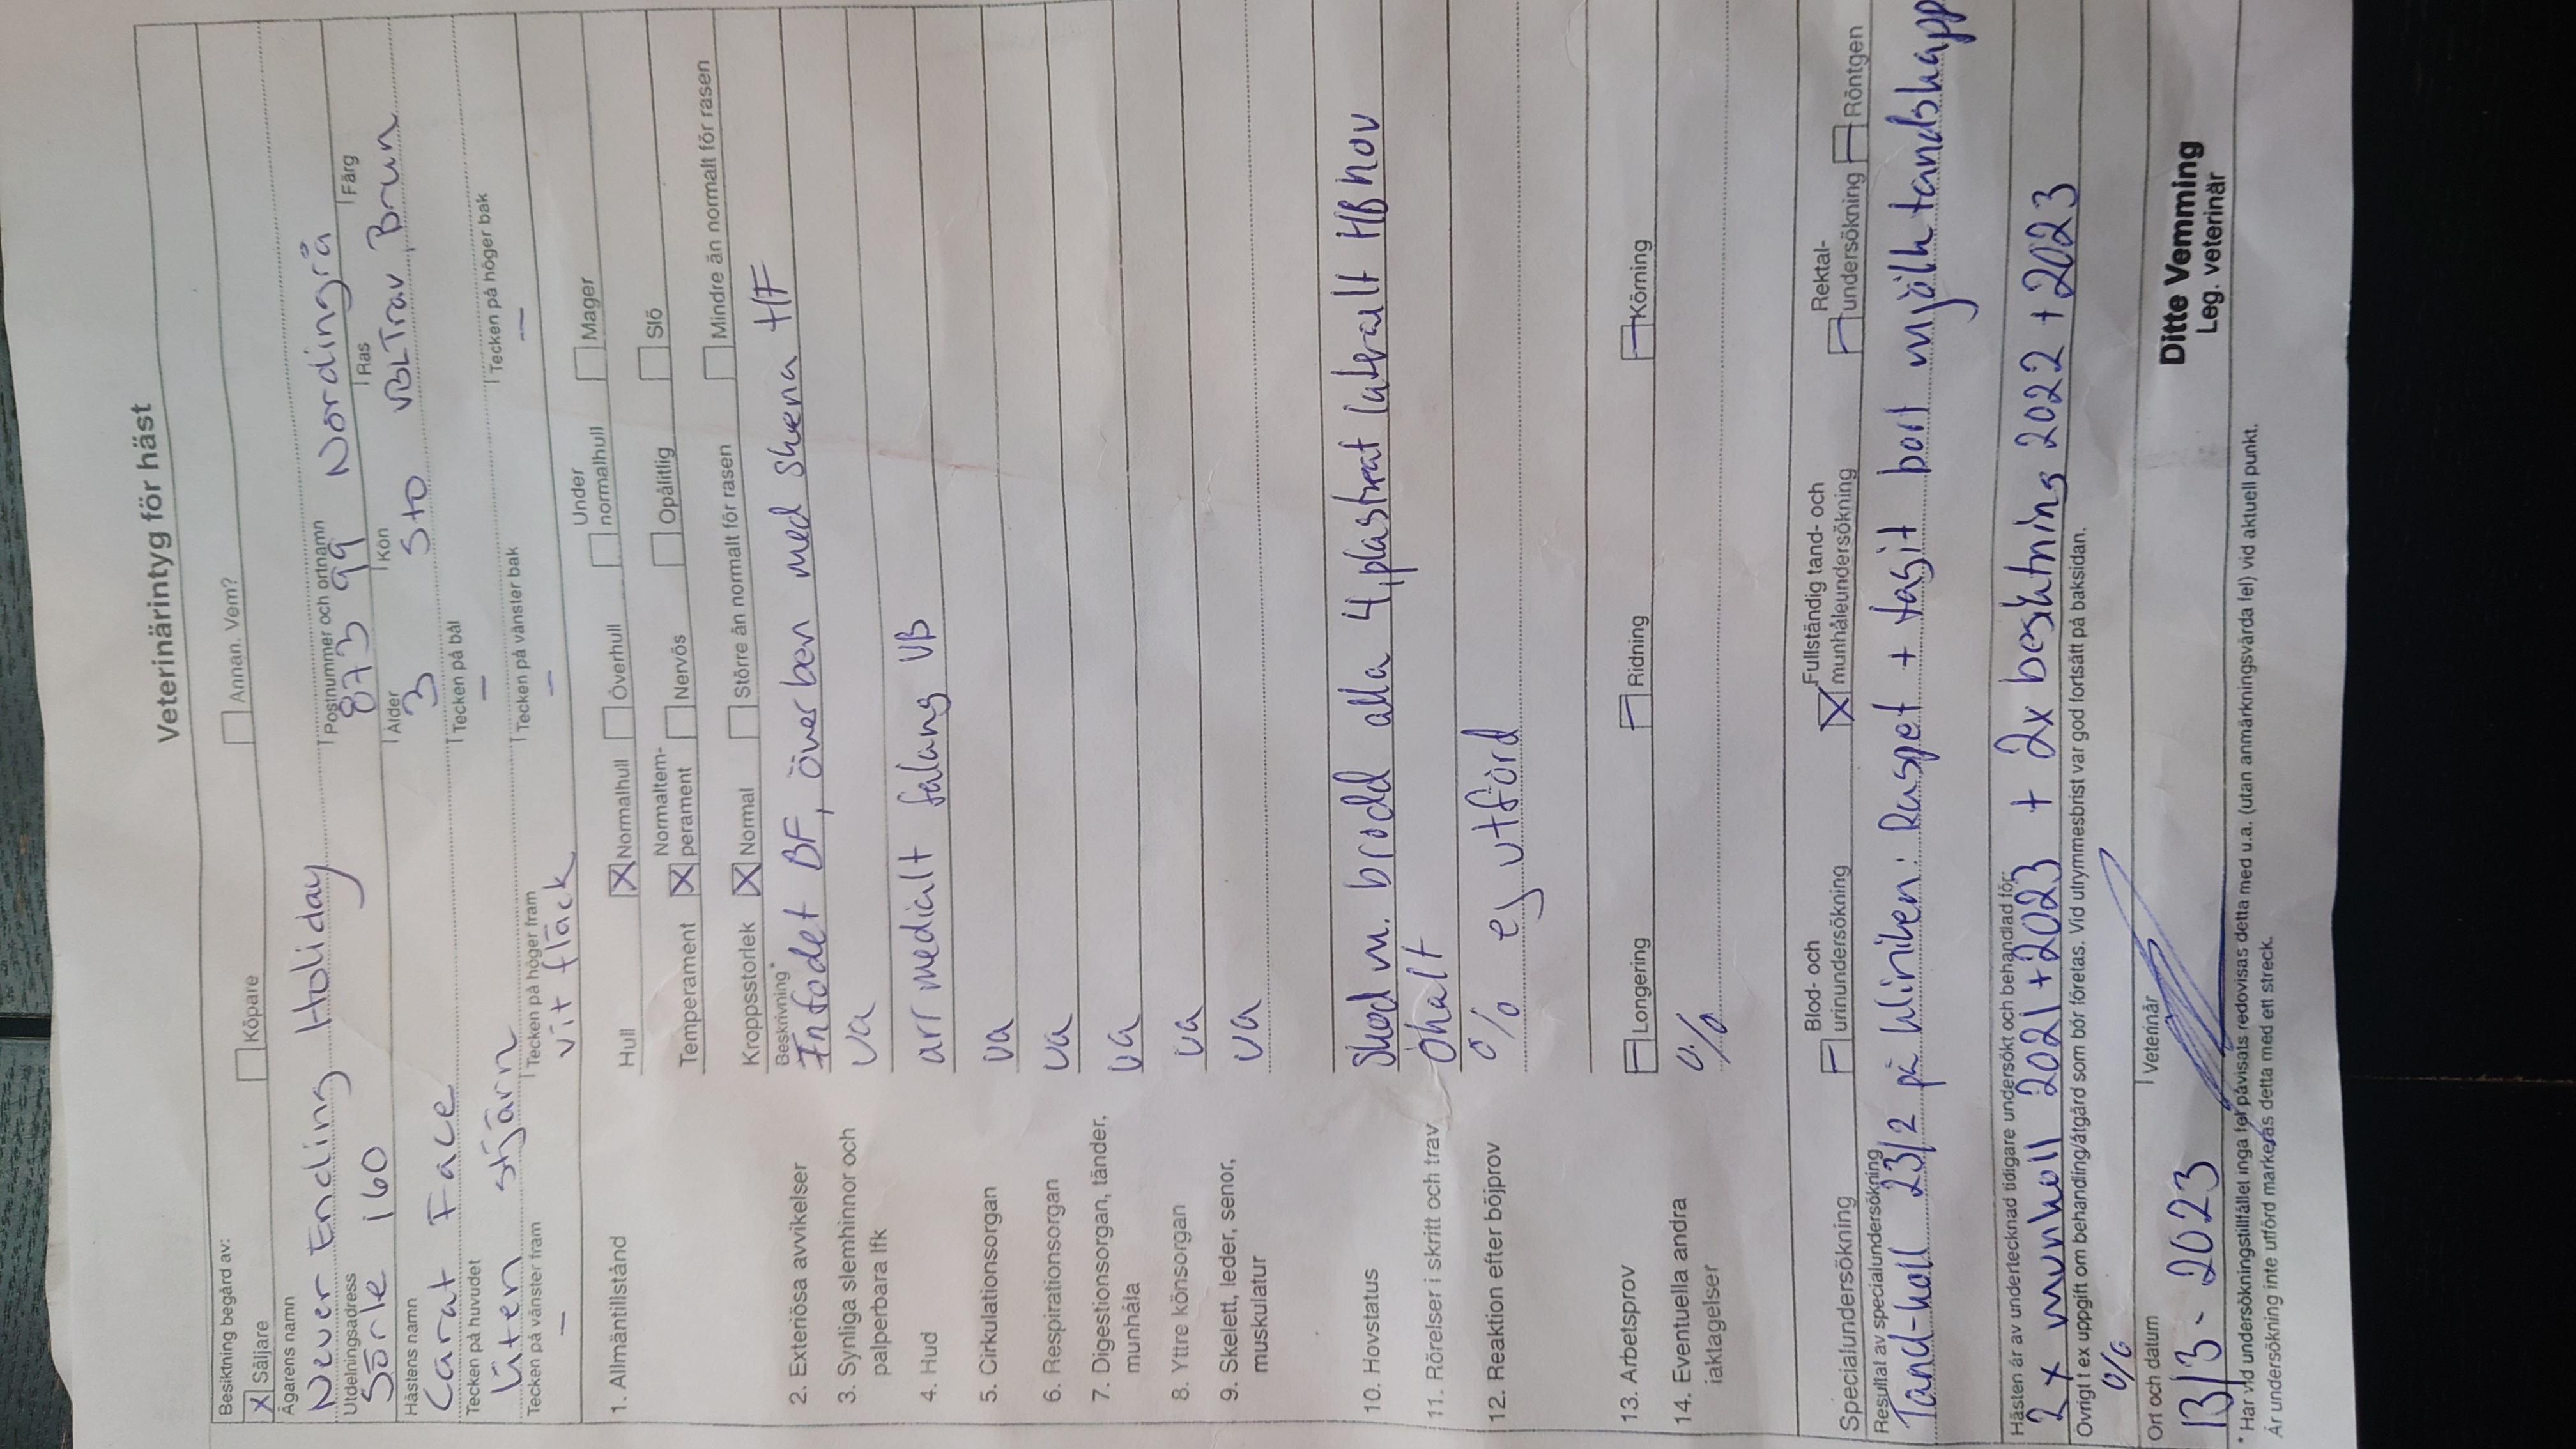 Veterinärintyg för häst
Besiktning begärd av:
X Säljare Köpare Annan. Vem?
Ägarens namn
Never Ending Holiday
Utdelningsadress Postnummer och ortnamn
Sörle 160 873 99 Nordingrå
Hästens namn Ålder Kön Ras Färg
Carat Face 3 Sto VBLTrav Brun
Tecken på huvudet Tecken på bål
Liten stjärn —
Tecken på vänster fram Tecken på höger fram Tecken på vänster bak Tecken på höger bak
— vit fläck — —
1. Allmäntillstånd Hull X Normalhull Överhull Under normalhull Mager
Temperament X Normaltemperament Nervös Opålitlig Slö
Kroppsstorlek X Normal Större än normalt för rasen Mindre än normalt för rasen
Beskrivning*
2. Exteriösa avvikelser Intodet BF, överben med skena HF
3. Synliga slemhinnor och palperbara lfk ua
4. Hud arr medialt falang VB
5. Cirkulationsorgan ua
6. Respirationsorgan ua
7. Digestionsorgan, tänder, munhåla ua
8. Yttre könsorgan ua
9. Skelett, leder, senor, muskulatur ua
10. Hovstatus Skod m. brodd alla 4, plastrat lateralt HB hov
11. Rörelser i skritt och trav Ohalt
12. Reaktion efter böjprov % ej utförd
13. Arbetsprov Longering Ridning Körning
14. Eventuella andra iakttagelser %
Specialundersökning Blod- och urinundersökning X Fullständig tand- och munhåleundersökning Rektal-undersökning Röntgen
Resultat av specialundersökning
Tand-koll 23/2 på kliniken: Raspet + tagit bort mjölktandskapp
Hästen är av undertecknad tidigare undersökt och behandlad för:
2 x munkoll 2021 + 2023 + 2x besiktning 2022 + 2023
Övrigt t ex uppgift om behandling/åtgärd som bör företas. Vid utrymmesbrist var god fortsätt på baksidan.
%
Ort och datum Veterinär
13/3 - 2023
Ditte Vemming
Leg. veterinär
* Har vid undersökningstillfället inga fel påvisats redovisas detta med u.a. (utan anmärkningsvärda fel) vid aktuell punkt.
Är undersökning inte utförd markeras detta med ett streck.